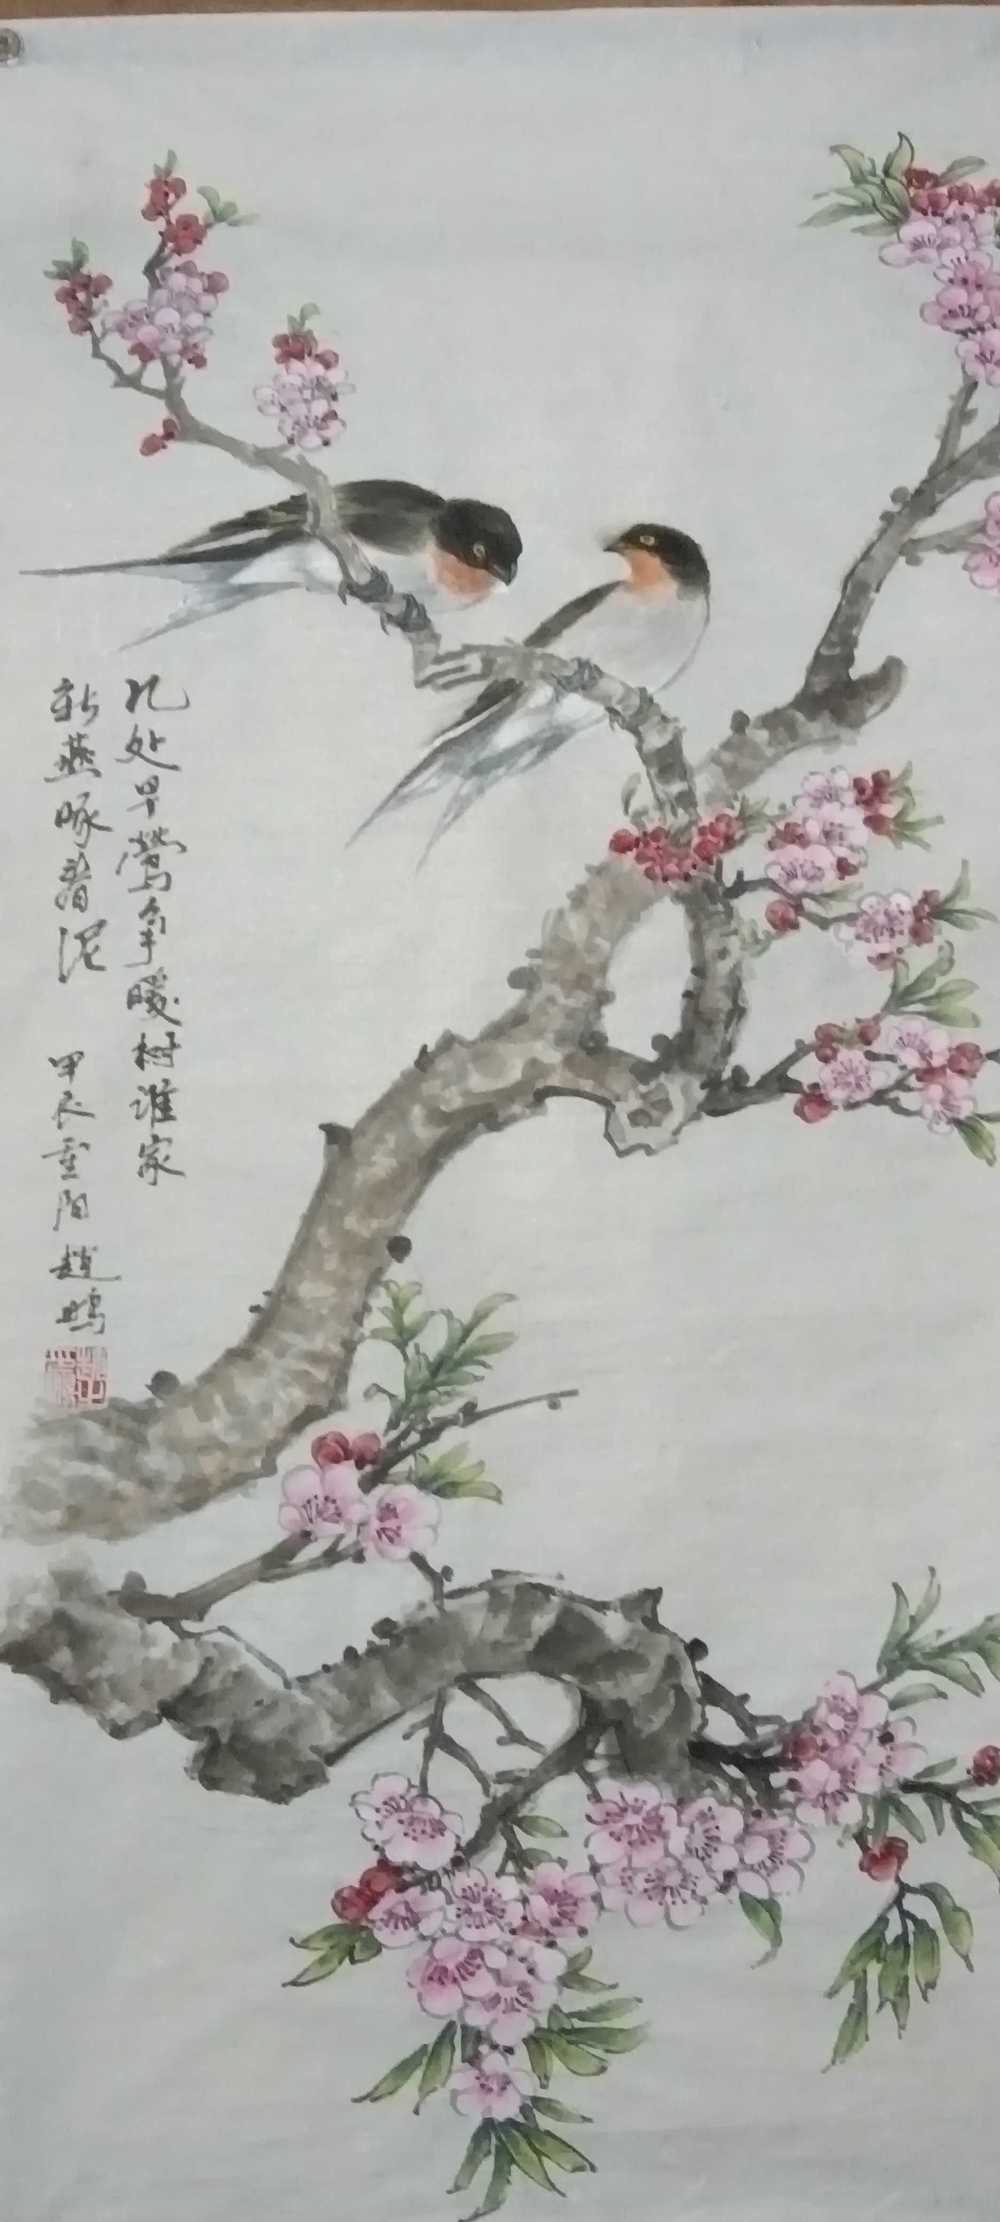 几处早莺争暖树谁家
新燕啄春泥 甲辰重阳 赵鸣